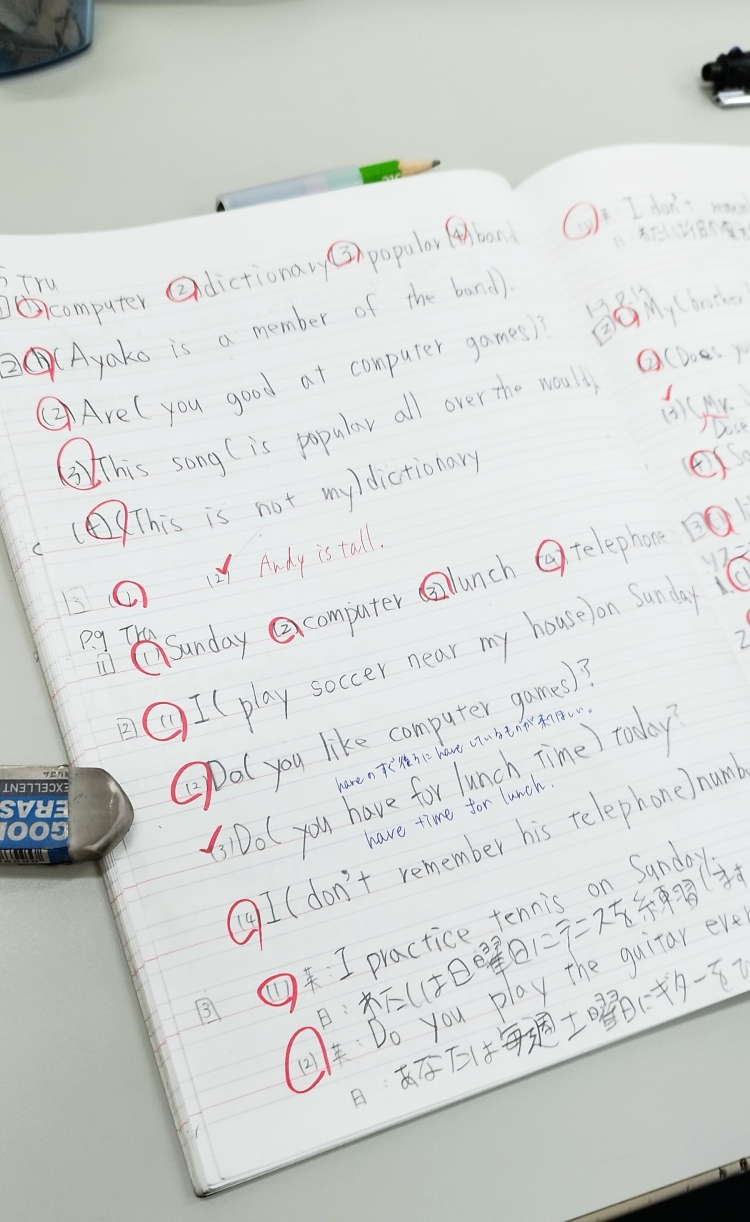 Try
1 (1) computer (2) dictionary (3) popular (4) band
2 (1) (Ayako is a member of the band).
(2) Are ( you good at computer games)?
(3) This song ( is popular all over the would).
(4) (This is not my) dictionary
3 (1) (2) Andy is tall.
P.9 Try
1 (1) Sunday (2) computer (3) lunch (4) telephone
2 (1) I ( play soccer near my house) on Sunday
(2) Do ( you like computer games)?
haveのすぐ後ろにhaveしているものが来てほしい。
(3) Do ( you have for lunch time) today?
have time for lunch.
(4) I ( don't remember his telephone) numb
3 (1) 英: I practice tennis on Sunday.
日: わたしは日曜日にテニスを練習します
(2) 英: Do you play the guitar ever
日: あなたは毎週土曜日にギターをひ
I don't
2 (1) My (brother
(2) (Does yo
(3) (Mr.
Dose
(4) So
3 (1)
EXCELLENT
GOO
ERAS